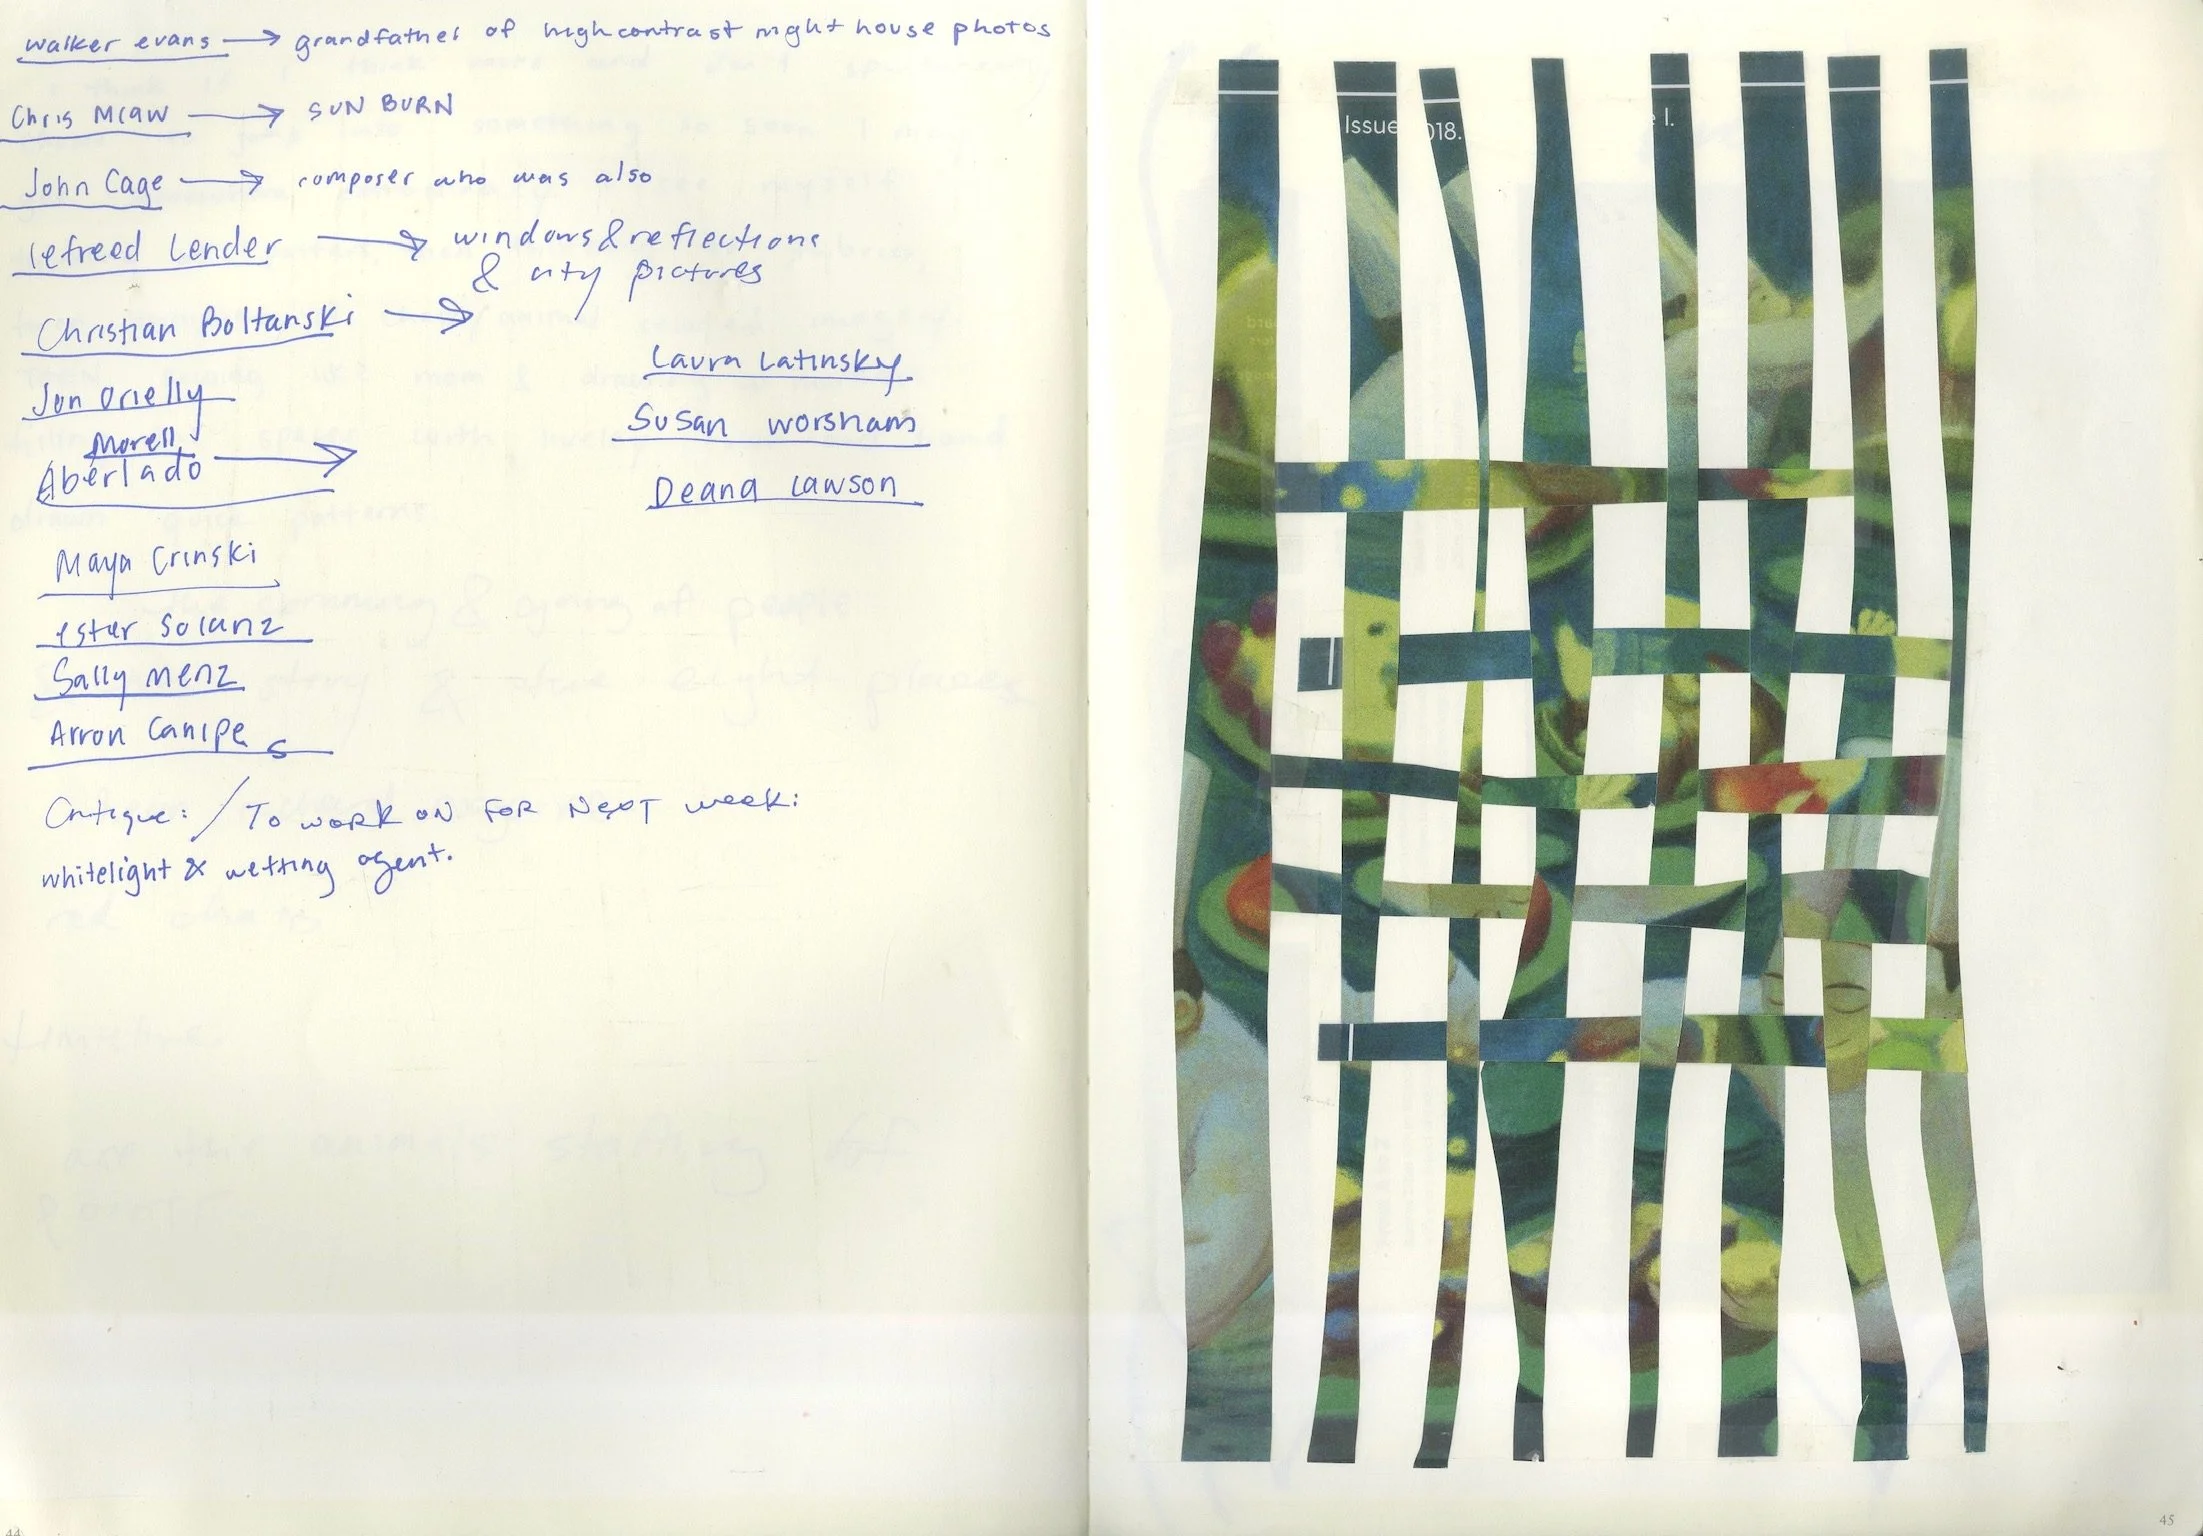 walker evans → grandfather of highcontrast night house photos
Chris Mcaw → SUN BURN
John Cage → composer who was also
lefreed Lender → windows & reflections
& city pictures
Christian Boltanski →
Laura Latinsky
Jon Orielly
Susan worsham
Morell
Aberlado →
Deana Lawson
Maya Crinski
ester Solanz
Sally Menz
Arron Canipe s
Critique: / To work on FOR NEXT week:
whitelight & wetting agent.
44
Issue 018. e I.
45